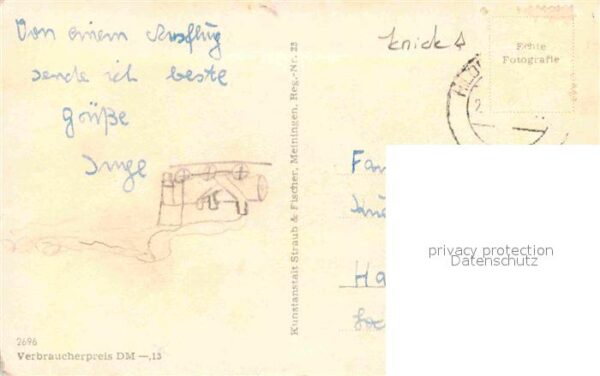 Von einem Ausflug
sende ich beste
Grüße
Inge
knick
Echte
Fotografie
Kunstanstalt Straub & Fischer, Meiningen, Reg.-Nr. 23
Fam
Ha
privacy protection
Datenschutz
2696
Verbraucherpreis DM —,13